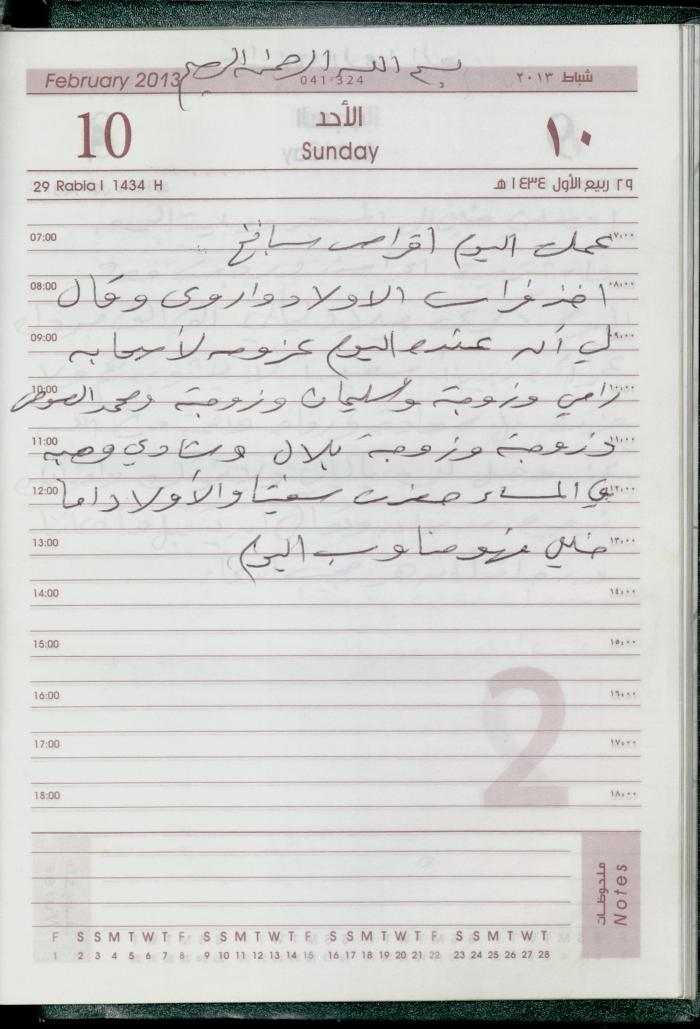 بسم الله الرحمن الرحيم
February 2013
041-324
شباط ٢٠١٣
10
الأحد
Sunday
١٠
29 Rabia I 1434 H
٢٩ ربيع الأول ١٤٣٤ هـ
07:00 عملت اليوم اقراص سبانخ ٠٧:٠٠
08:00 اخذ فراس الاولاد واروى وقال ٠٨:٠٠
09:00 لي أنه عنده اليوم عزومه لأصحابه ٠٩:٠٠
10:00 رامي وزوجة وسليمان وزوجة ومحمد ١٠:٠٠
11:00 وزوجة وزوجة بلال وشادي ١١:٠٠
12:00 في المساء حضرت سفيتا والأولاد اما ١٢:٠٠
13:00 فهو مناوب اليوم ١٣:٠٠
14:00 ١٤:٠٠
15:00 ١٥:٠٠
16:00 ١٦:٠٠
17:00 ١٧:٠٠
18:00 ١٨:٠٠
2
ملحوظات
Notes
F S S M T W T F S S M T W T F S S M T W T F S S M T W T
1 2 3 4 5 6 7 8 9 10 11 12 13 14 15 16 17 18 19 20 21 22 23 24 25 26 27 28